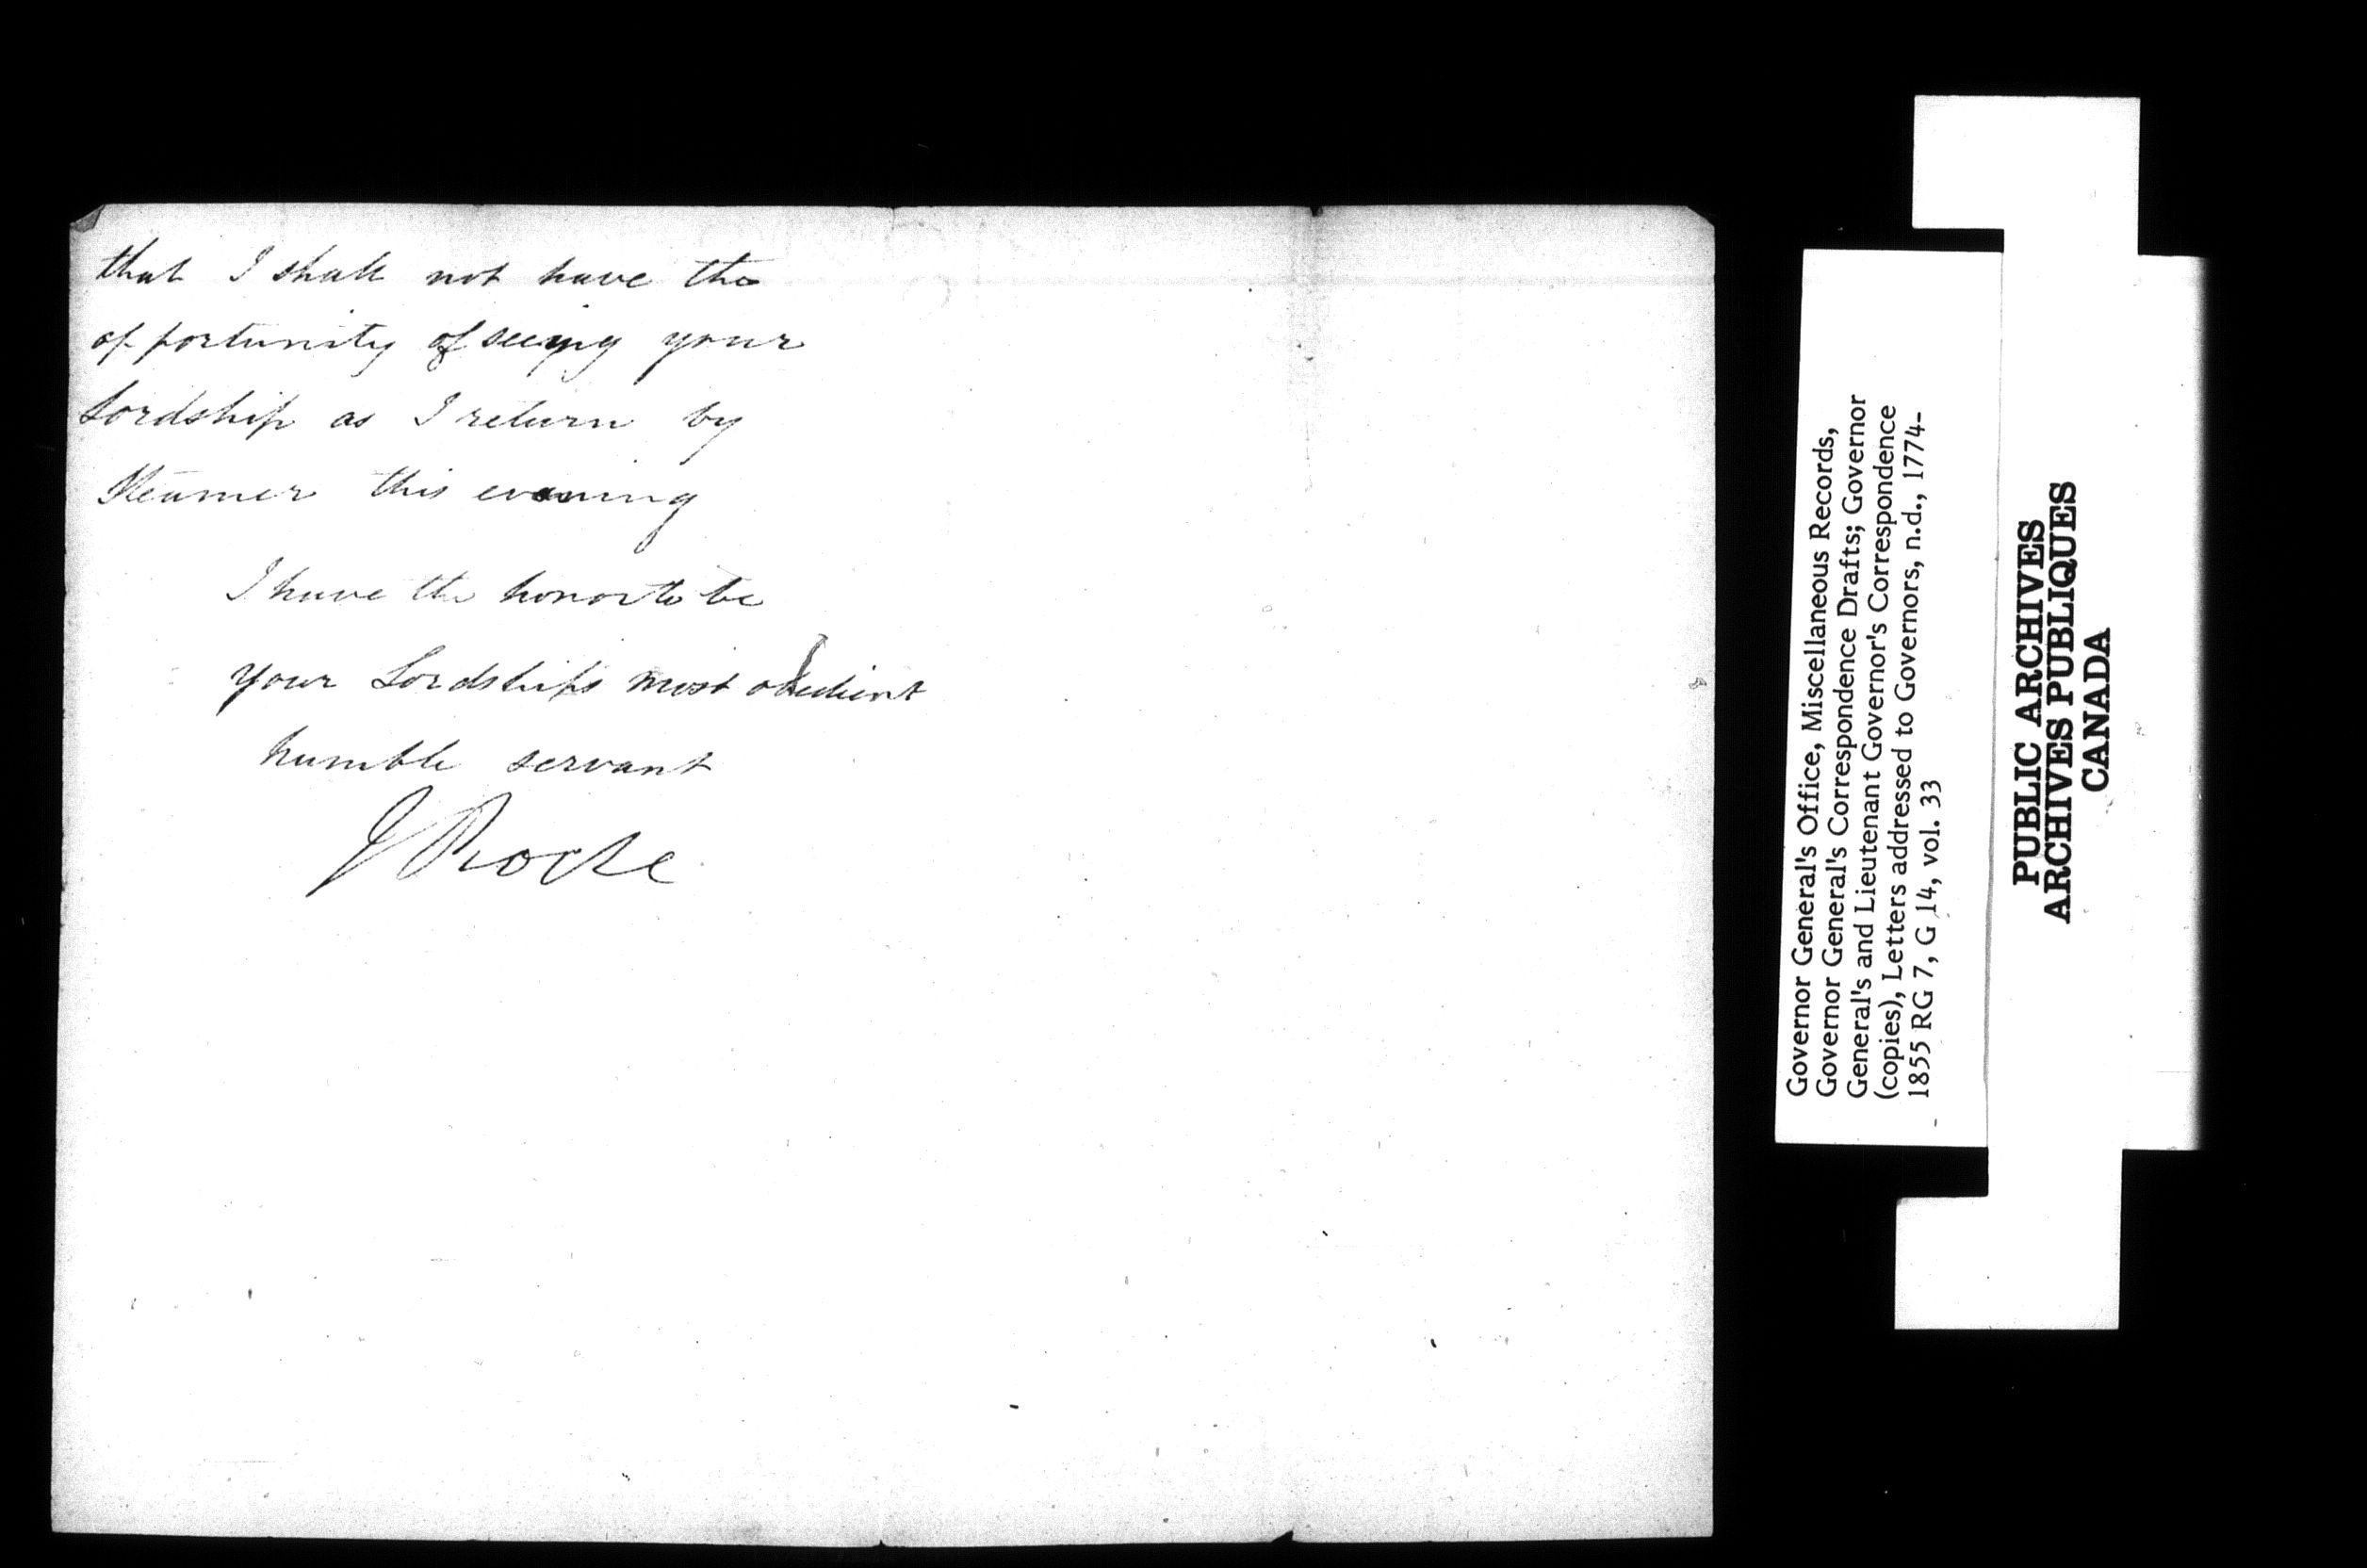 that I shall not have the
opportunity of seeing your
Lordship as I return by
Steamer this evening
I have the honor to be
your Lordships most obedient
humble servant
J Roche
Governor General's Office, Miscellaneous Records,
Governor General's Correspondence Drafts; Governor
General's and Lieutenant Governor's Correspondence
(copies), Letters addressed to Governors, n.d., 1774-
1855 RG 7, G 14, vol. 33
PUBLIC ARCHIVES
ARCHIVES PUBLIQUES
CANADA